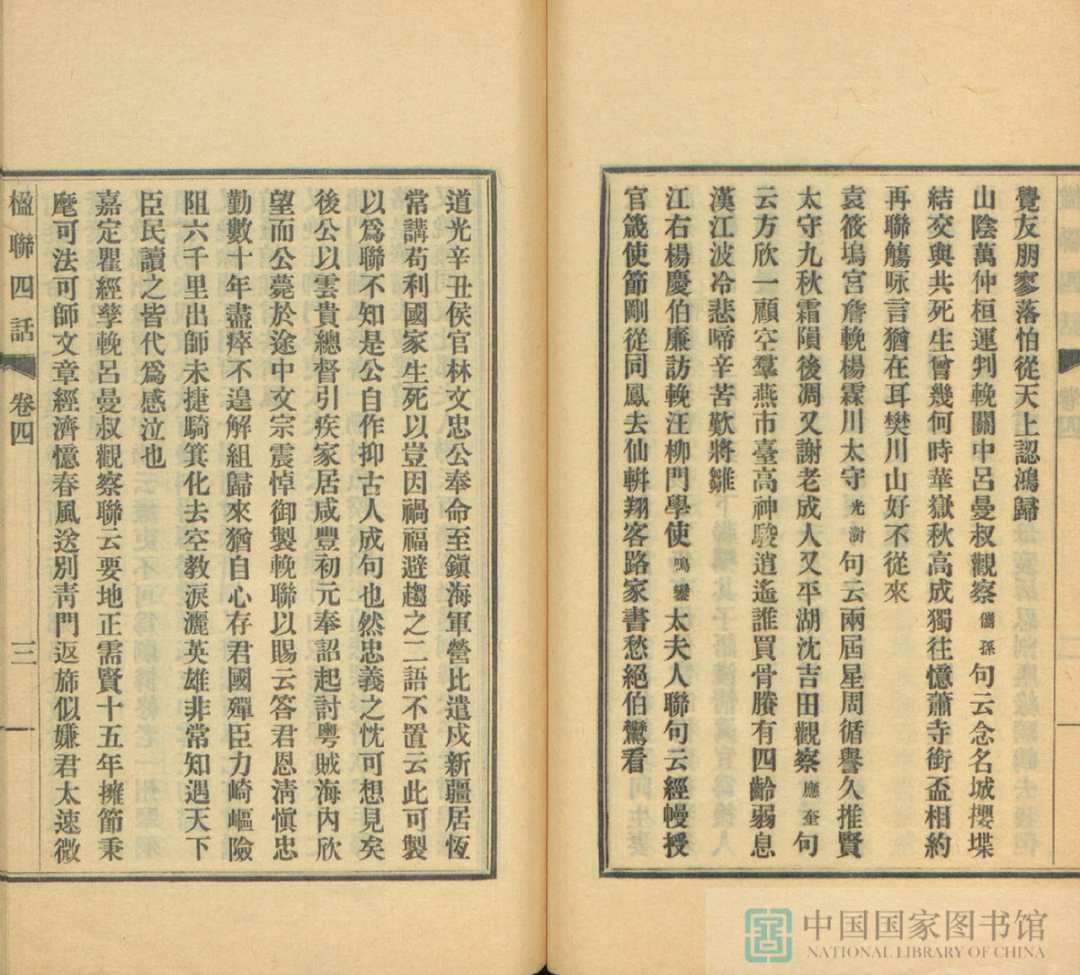 覺友朋寥落怕從天上認鴻歸
山陰萬仲桓運判輓關中呂曼叔觀察儁孫句云念名城攖堞
結交與共死生曾幾何時華嶽秋高成獨往憶蕭寺銜盃相約
再聯觴咏言猶在耳樊川山好不從來
袁筱塢宮詹輓楊霖川太守光澍句云兩屆星周循譽久推賢
太守九秋霜隕後凋又謝老成人又平湖沈吉田觀察應奎句
云方欣一顧空羣燕市臺高神駿逍遙誰買骨賸有四齡弱息
漢江波冷悲啼辛苦歎將雛
江右楊慶伯廉訪輓汪柳門學使鳴鑾太夫人聯句云經幔授
官箴使節剛從同鳳去仙輧翔客路家書愁絕伯鸞看
道光辛丑侯官林文忠公奉命至鎭海軍營比遣戍新疆居恆
常講苟利國家生死以豈因禍福避趨之二語不置云此可製
以爲聯不知是公自作抑古人成句也然忠義之忱可想見矣
後公以雲貴總督引疾家居咸豐初元奉詔起討粵賊海內欣
望而公薨於途中文宗震悼御製輓聯以賜云答君恩淸愼忠
勤數十年盡瘁不遑解組歸來猶自心存君國殫臣力崎嶇險
阻六千里出師未捷騎箕化去空教淚灑英雄非常知遇天下
臣民讀之皆代爲感泣也
嘉定瞿經孳輓呂曼叔觀察聯云要地正需賢十五年擁節秉
麾可法可師文章經濟憶春風送別靑門返旆似嫌君太速微
楹聯四話
卷四
三
中国国家图书馆
NATIONAL LIBRARY OF CHINA